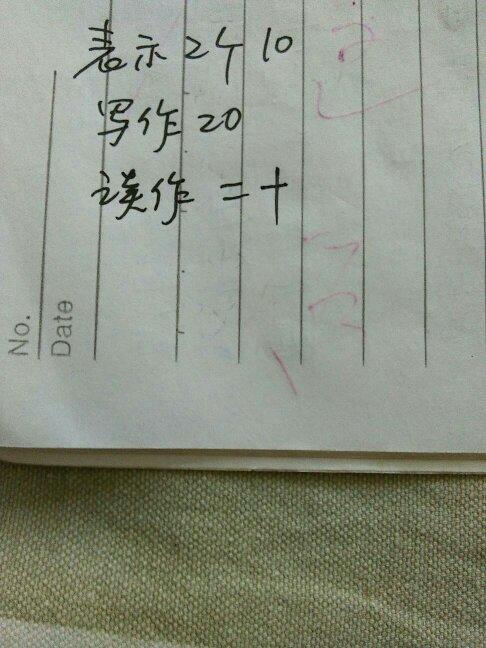 表示2个10
写作20
读作二十
No.
Date